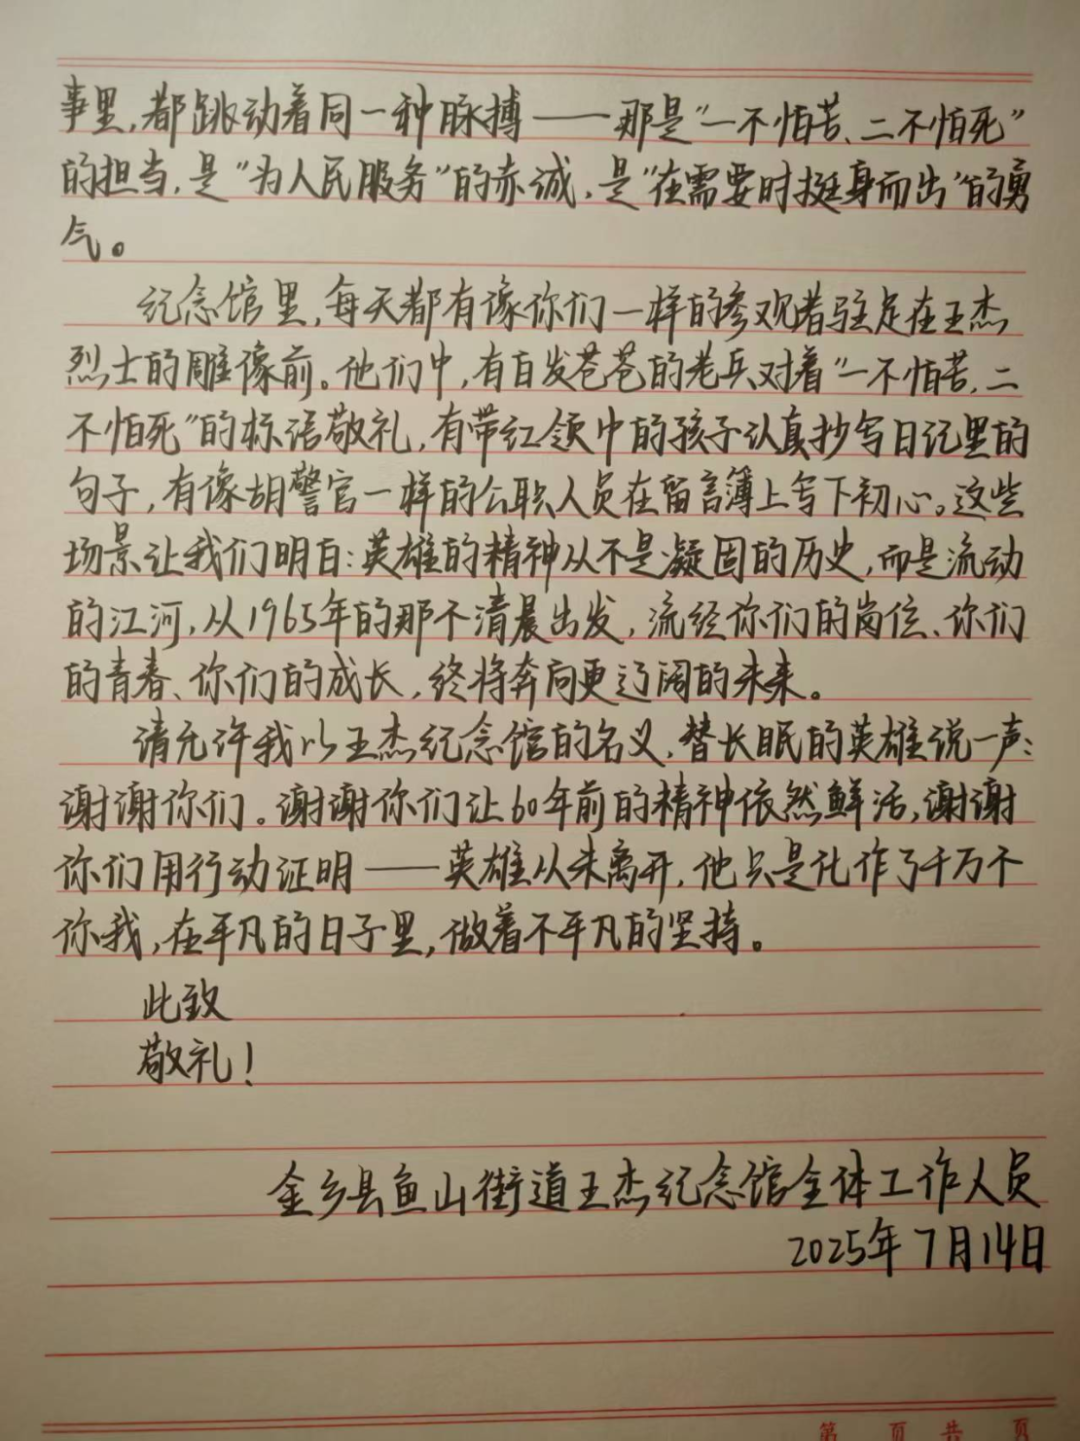 事里,都跳动着同一种脉搏——那是"一不怕苦、二不怕死"
的担当,是"为人民服务"的赤诚,是"在需要时挺身而出"的勇
气。
纪念馆里,每天都有像你们一样的参观者驻足在王杰
烈士的雕像前。他们中,有白发苍苍的老兵对着"一不怕苦,二
不怕死"的标语敬礼,有带红领巾的孩子认真抄写日记里的
句子,有像胡警官一样的公职人员在留言簿上写下初心。这些
场景让我们明白:英雄的精神从不是凝固的历史,而是流动
的江河,从1965年的那个清晨出发,流经你们的岗位、你们
的青春、你们的成长,终将奔向更辽阔的未来。
请允许我以王杰纪念馆的名义,替长眠的英雄说一声:
谢谢你们。谢谢你们让60年前的精神依然鲜活,谢谢
你们用行动证明——英雄从未离开,他只是化作了千万个
你我,在平凡的日子里,做着不平凡的坚持。
此致
敬礼!
金乡县鱼山街道王杰纪念馆全体工作人员
2025年7月14日
第 页 共 页